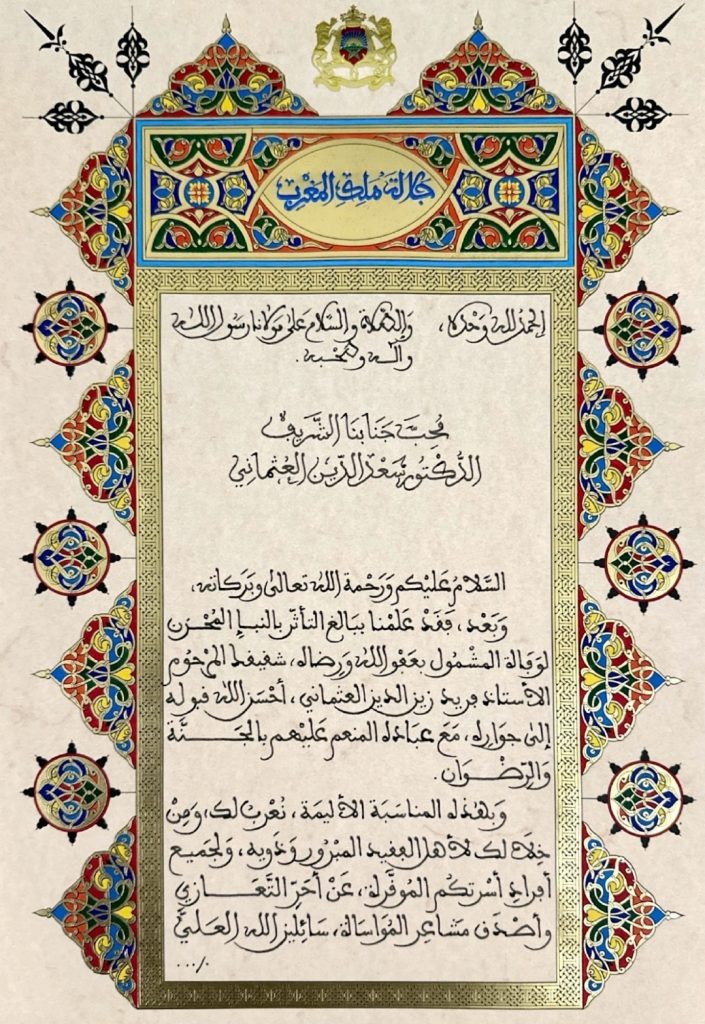 جلالة ملك المغرب
الحمد لله وحده، والصلاة والسلام على مولانا رسول الله
وآله وصحبه.
محب جنابنا الشريف
الدكتور سعد الدين العثماني
السلام عليكم ورحمة الله تعالى وبركاته،
وبعد، فقد علمنا ببالغ التأثر بالنبإ المحزن
لوفاة المشمول بعفو الله ورضاه، شقيقك المرحوم
الأستاذ فريد زين الدين العثماني، أحسن الله قبوله
إلى جواره، مع عباده المنعم عليهم بالجنة
والرضوان.
وبهذه المناسبة الأليمة، نعرب لك، ومن
خلالك لأهل الفقيد المبرور وذويه، ولجميع
أفراد أسرتكم الموقرة، عن أحر التعازي
وأصدق مشاعر المواساة، سائلين الله العلي
.../.